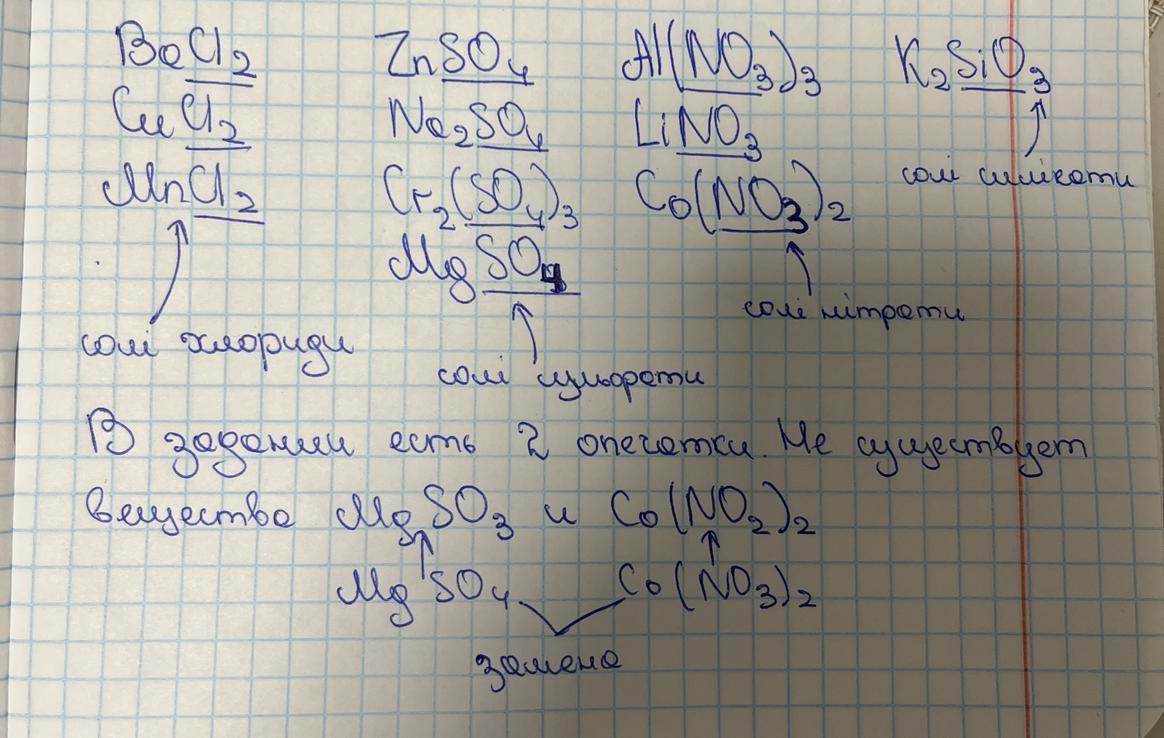 BaCl2 ZnSO4 Al(NO3)3 K2SiO3
CuCl2 Na2SO4 LiNO3
MnCl2 Cr2(SO4)3 Co(NO3)2 солі силікати
MgSO4
солі хлориди солі сульфати солі нітрати
В задании есть 2 опечатки. Не существует
вещества MgSO3 и Co(NO2)2
MgSO4 Co(NO3)2
замена